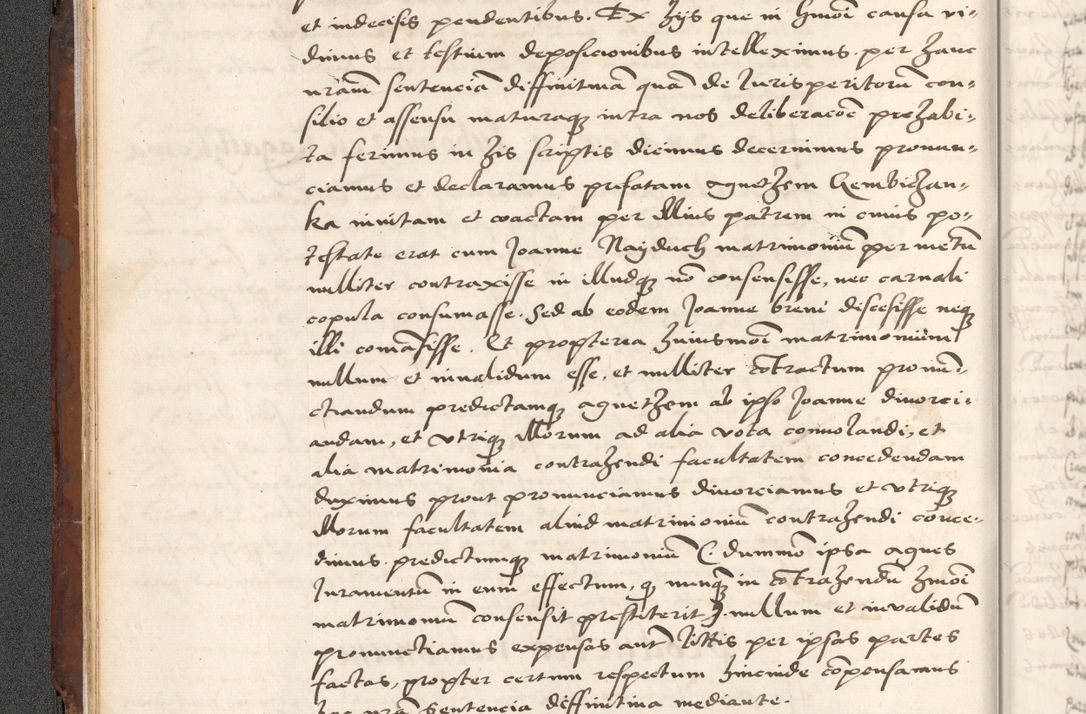 et indecisis pendentibus. Ex hijs que in hmoi causa vi-
dimus et testium deposicionibus intelleximus. per hanc
nram sentenciam diffinitiuam quam de Jurisperitorum con-
silio et assensu maturaq intra nos deliberacoe prehabi-
ta ferimus in his scriptis dicimus decernimus pronun-
ciamus et declaramus prefatam agnethem Gembichan-
ka inuitam et coactam per illius patrem in cuius po-
testate erat cum Joanne Nayduch matrimonium per metum
nulliter contraxisse in illudq no consensisse, nec carnali
copula consumasse. Sed ab eodem Joanne breui discesisse neq
illi comansisse. Et propterea huiusmoi matrimonium
nullum et inualidum esse, et nulliter contractum pronun-
ctiandum predictamq agnethem ab ipso Joanne diuorci-
andam, et vtriq illorum ad alia vota conuolandi, et
alia matrimonia contrahendi facultatem concedendam
duximus prout pronunciamus diuorciamus et vtriq
illorum facultatem aliud matrimonium contrahendi conce-
dimus. predictumq matrimonium C. dummo ipsa agnes
Juramentum in eum effectum, q nunq in contrahendu hmoi
matrimonium consensit prestiterit J. nullum et inualidum
pronunctiamus expensas aut littis per ipsas partes
factas, propter certum respectum hincinde compensamus
hac nra Sentencia diffinitiua mediante.